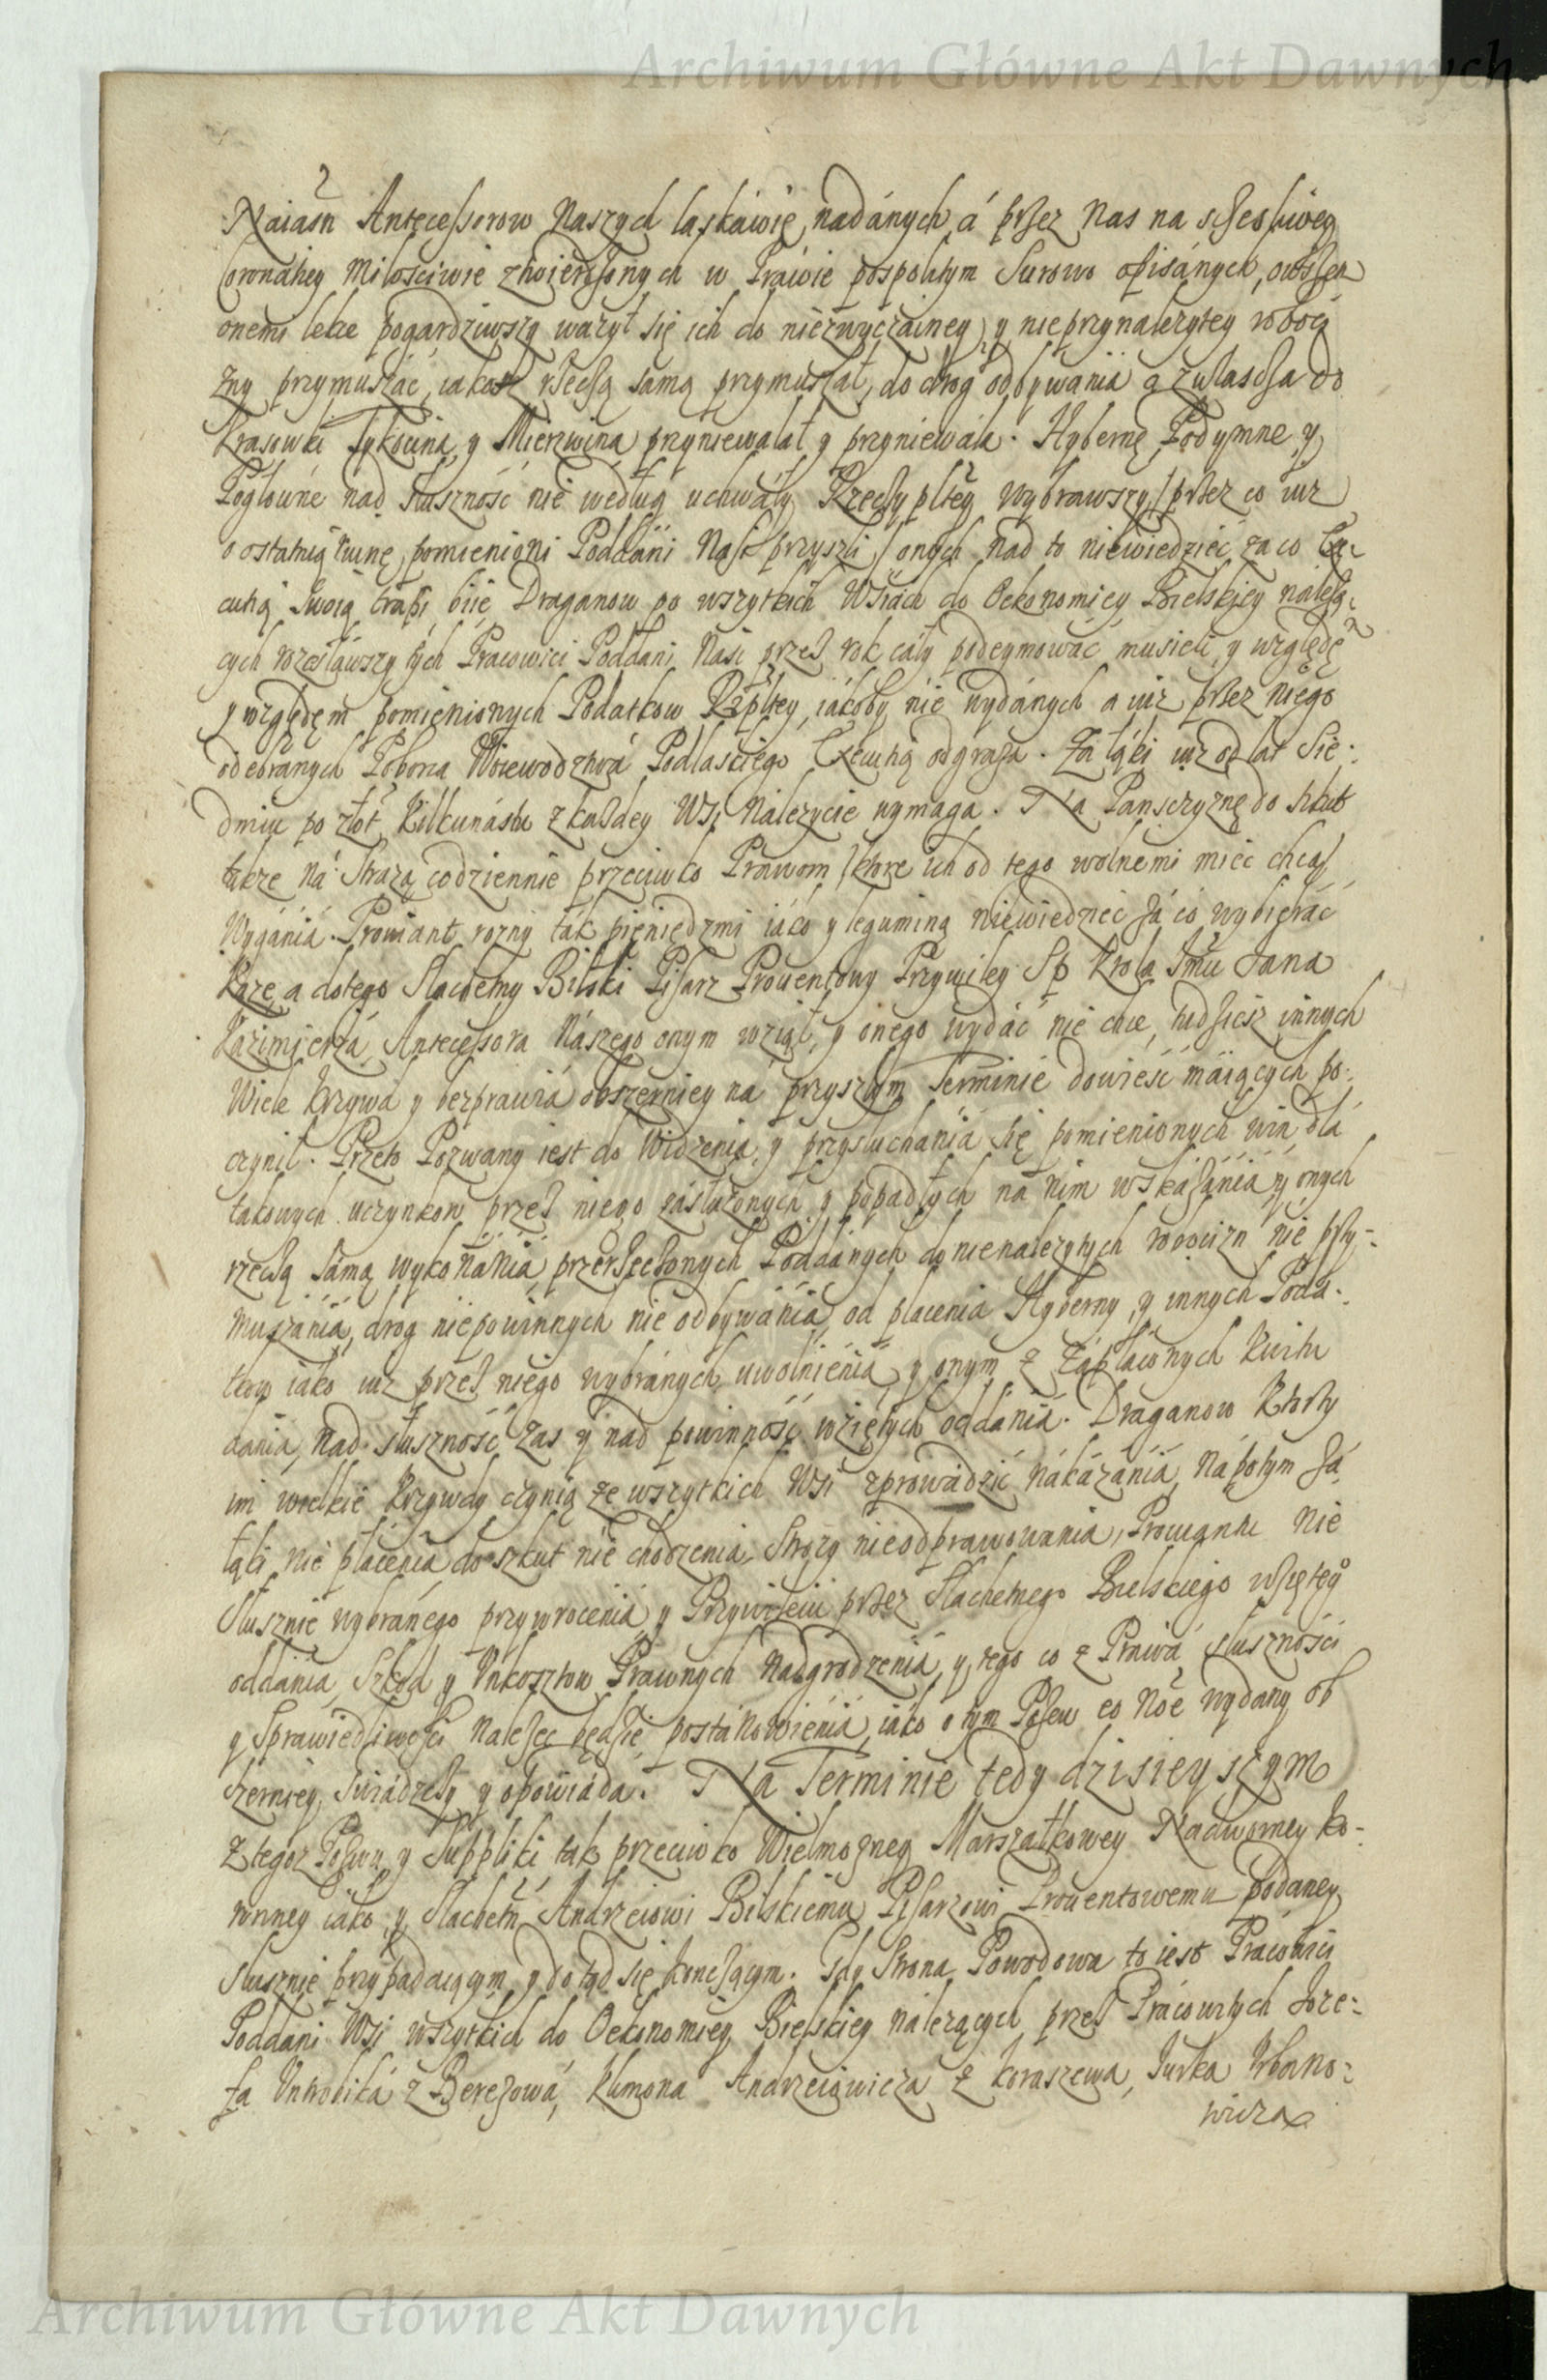 Archiwum Główne Akt Dawnych
Naiasn Antecessorow Naszych laskawie nadánych á przez Nas na sczesliwey
Coronatiey Milosciwie ztwierdzonych w Prawie pospolitym Surowo opisánych, owszen
onemi lekce pogardziwszy wazył się ich do niezwyczainey y nieprzynalezytey roboci
zny przymuszáć, iakosz rzeczą samą przymuszał, do drog odbywánia a zwlascza do
Krasowki Tykocina, y Mierzwina przyniewalał y przyniewala. Hybernę Podymne, y
Pogłowne nad słuszność nie według uchwały Rzeczypltey wybrawszy / przez co iuz
o ostatnią ruinę pomienioni Poddani Nasi przyszli / onych nad to niewiedzieć za co Exe
cutią swoią trapi, biie Draganow po wszytkich Wsiach do Oekonomiey Bielskiey należą,
cych rozesławszy tych Pracowici Poddani Nasi przez rok cáły podeymować musieli, y względę
y względem pomienionych Podatkow Rzpltey, iákoby nie wydánych a iuz przez niego
odebranych Poborca Woiewodztwá Podlaskiego Executią odgraza. Za łąki iuz od lat Sie-
dmiu po złot Kilkunástu z kazdey Wsi Nalezycie wymaga. Na Pansczyznę do szkut
takze ná Strazą codziennie przeciwko Prawom / ktore ich od tego wolnemi mieć chcą /
Wygánia. Prowiant rozny ták pieniędzmi iáko y leguminą niewiedzieć zá co wybieráć
Kaze, a do tego Slachetny Bilski Pisarz Prouentowy Przywiley Sp Krola Jmci Jana
Kazimierzá Antecessora Nászego onym wziął, y onego wydáć nie chce, tudziesz innych
Wiele krzywd y bezprawiá obszerniey ná przyszłym Terminie dowieść máiących po-
czynił. Przeto Pozwany iest do Widzenia y przysłuchania się pomienionych win dlá
takowych uczynkow przez niego zásłużonych y popadłych na nim wskázánia y onych
rzeczą samą wykonánia, przerzeczonych Poddánych do nienalezytych roboczizn nie przy-
muszánia, drog niepowinnych nie odbywánia, od płacenia Hyberny, y innych Poda-
tkow iáko iuz przez niego wybránych uwolnienia, y onym z Zápłaconych kwitu
dania, Nad słuszność zas y nad powinność wziętych oddania. Draganow Ktorzy
im wielkie krzywdy czynią ze wszytkich Wsi zprowádzić nákázánia, Nápotym Zá
łąki nie płácenia do szkut nie chodzenia, Strozy nieodprawowania, Prowiantu nie
słusznie wybránego przywrocenia y Przywileiu przez Slachetnego Bielskiego wziętego
oddania, Szkod y Vnkosztow Prawnych Nadgrodzenia, y tego co z Práwá słuszności
y Sprawiedliwości Nalezeć będzie postánowienia, iáko o tym Pozew eo Noe wydany ob
szerniey swiádczy y opowiáda. Na Terminie tedy dzisieyszym
Z tegoz Pozwu y Suppliki tak przeciwko Wielmozney Marszałkowey Nadworney Ko-
ronney iáko y Slachetn Andrzeiowi Bilskiemu Pisarzowi Prouentowemu podáney
słusznie przypadaiącym y dotąd się konczącym. Gdy Strona Powodowa to iest Prácowici
Poddani Wsi wszytkich do Oekonomiey Bielskiey nálezących przez Prácowitych Joze-
fa Vntrobiká z Berezowá, Klimona Andrzeiowicza z Koraszewa, Jurka Urbano-
wicza
Archiwum Główne Akt Dawnych